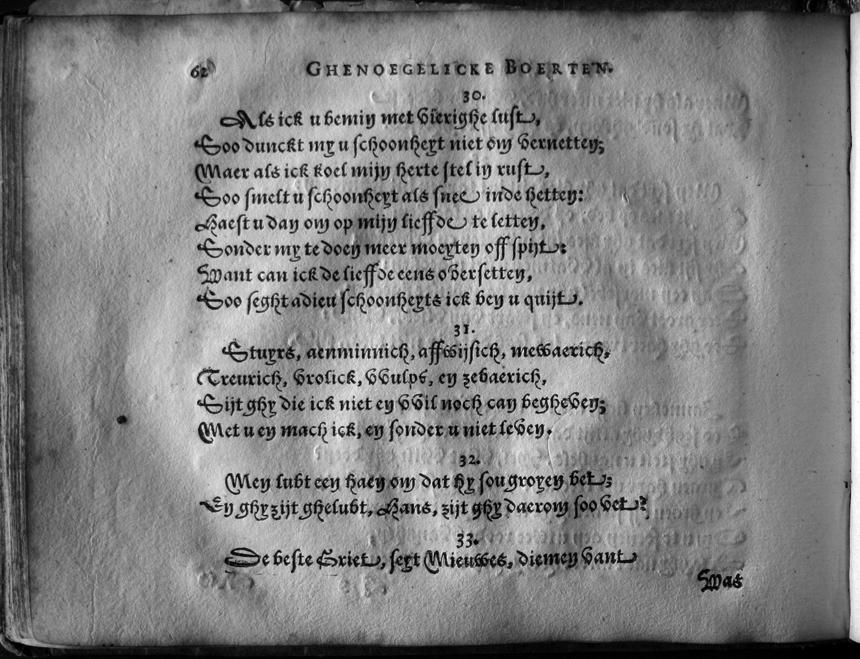 62 GHENOEGELICKE BOERTEN.
30.
Als ick u bemin met vierighe lust,
Soo dunckt my u schoonheyt niet om vernetten;
Maer als ick koel mijn herte stel in rust,
Soo smelt u schoonheyt als snee inde hetten:
Haest u dan om op mijn lieffde te letten,
Sonder my te doen meer moeyten off spijt:
Want can ick de lieffde eens oversetten,
Soo seght adieu schoonheyts ick ben u quijt.
31.
Stuyrs, aenminnich, affwijsich, mewaerich,
Treurich, vrolick, vvulps, en zebaerich,
Sijt ghy die ick niet en vvil noch can begheven;
Met u en mach ick, en sonder u niet leven.
32.
Men lubt een haen om dat hy sou groyen vet;
En ghy zijt ghelubt, Hans, zijt ghy daerom soo vet?
33.
De beste Griet, seyt Mieuwes, diemen vant
Was